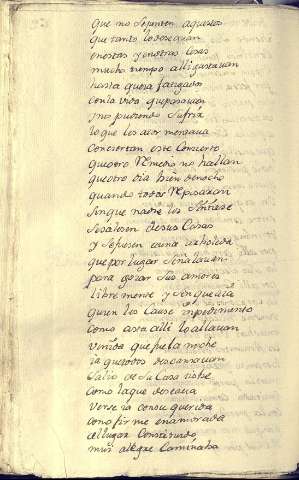 que no se pueden aquestos
que tanto lo deseauan
en estas y en otras cosas
mucho tiempo alli gastauan
hasta que ya fatigados
con la vida que pasauan
y no pudiendo sufrir
lo que les atormentaua
conciertan este concierto
que otro Remedio no hallan
que otro dia bien de noche
quando todos Reposauan
sin que nadie los sintiese
se saliesen de sus Casas
y se fuesen a una arboleda
que por lugar señalauan
para gozar sus amores
libremente y sin que aia
quien les cause impedimento
como asta alli lo allauan
venida que fue la noche
ia que todos descansauan
salio de su casa tisbe
como la que deseaua
verse ia con su querido
como firme enamorada
al lugar constituido
mui alegre caminaba